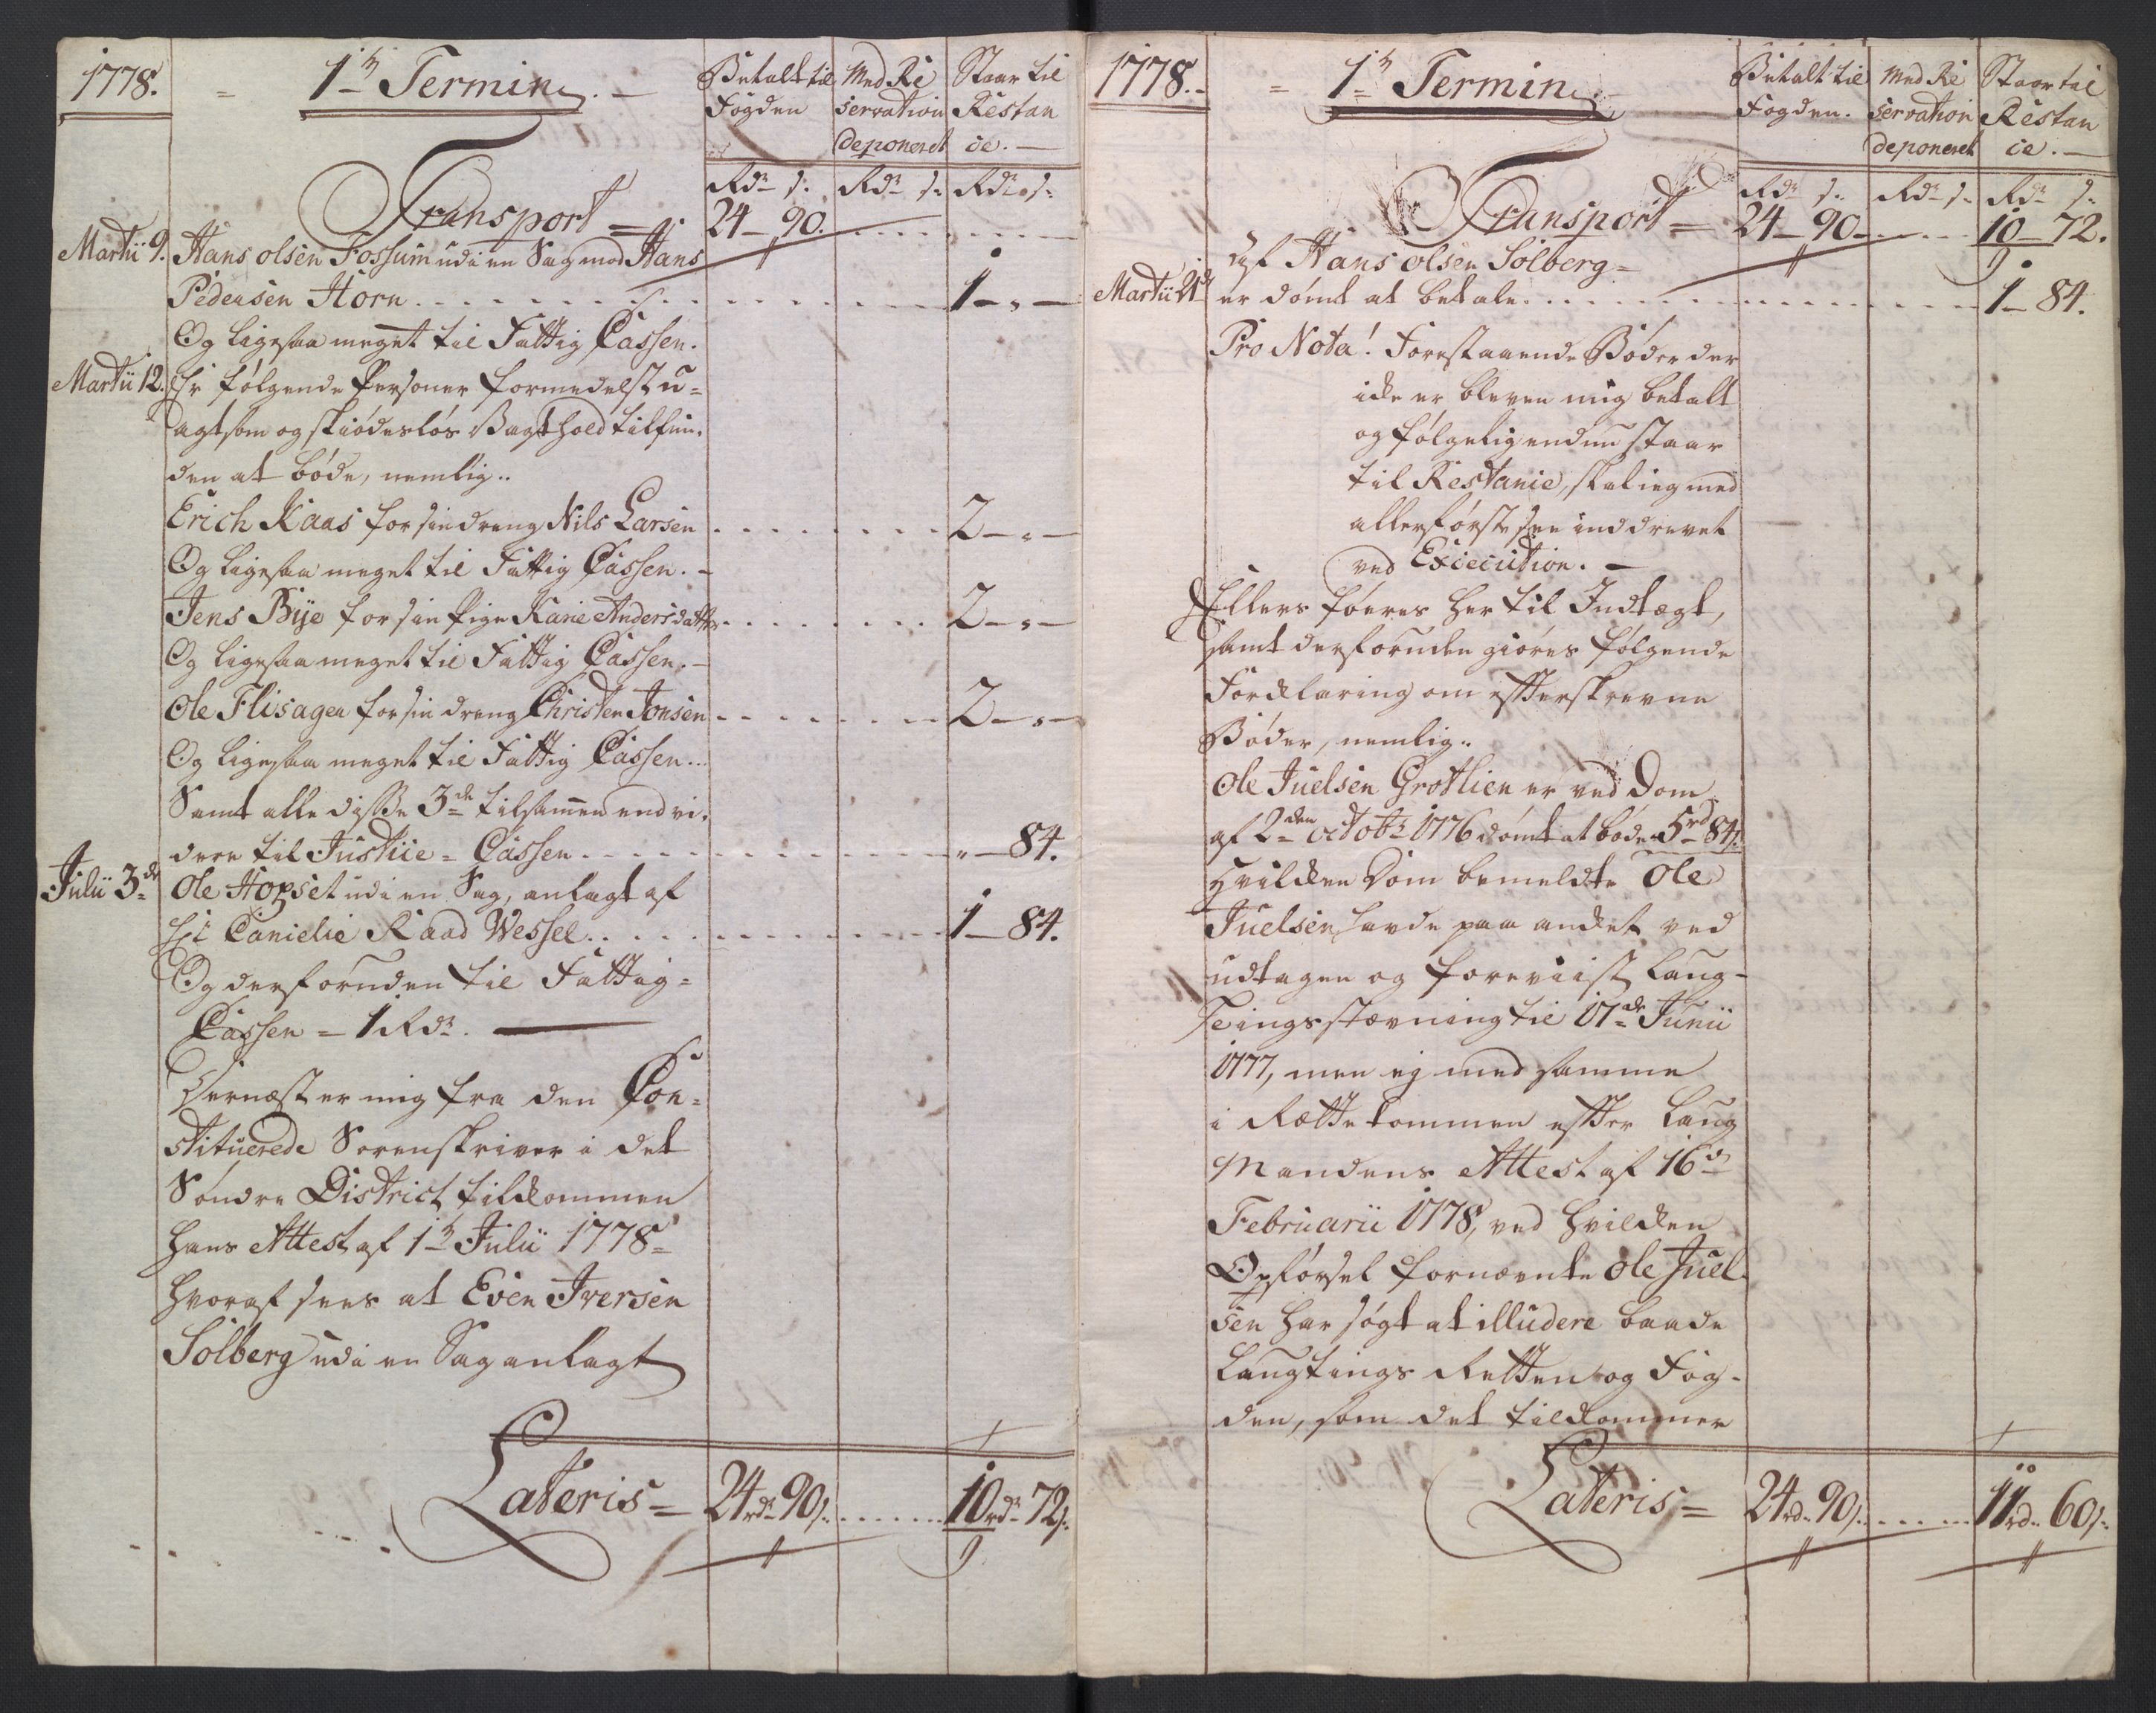 1778.
= 1ᵗᵉ Termin. —
Betalt til Fogden
Med Reservation deponeret
Staar til Restance. —
Rdr s: Rdr s: Rdr s:
Transport = 24 — 90.
Martii 9. Hans olsen Fossum udi en Sag mod Hans
Pedersen Horn . . . . 1 — „ —
Og ligesaa meget til Fattig Cassen.
Martii 12. Er følgende Personer formedelst u=
agtsom og skiødesløs Vagthold tilfun-
den at bøde, nemlig..
Erich Kaas for sin dreng Nils Larsen . . . . 2 — „ —
Og ligesaa meget til Fattig Cassen. —
Jens Bye for sin Pige Karie Andersdatter . . . . 2 — „ —
Og ligesaa meget til Fattig Cassen. —
Ole Flisagen for sin dreng Christen Jonsen . . . . 2 — „ —
Og ligesaa meget til Fattig Cassen...
Samt alle disse 3de tilsamen end vi-
dere til Justice = Cassen . . . . „ — 84.
Julii 3de Ole Hopset udi en Sag, anlagt af
Hr Cancelie Raad Wessel . . . . 1 — 84.
Og desforuden til Fattig =
Cassen = 1 Rdr. —
Dernæst er mig fra den Con=
stituerede Sorenskriver i det
Søndre District tilkommen
hans Attest af 1ᵗᵉ Julii 1778 =
hvoraf sees at Even Iversen
Solberg udi en Sag anlagt
Lateris = 24 rdr 90 s: . . . . 10 rdr 72 s:
1778. -
= 1ᵗᵉ Termin. —
Betalt til Fogden.
Med Reservation deponeret
Staar til Restance. —
Rdr s: Rdr s: Rdr s:
Transport = 24 — 90 — . . . . 10 — 72.
af Hans olsen Solberg =
Martii 21de er dømt at betale . . . . 1 — 84.
Pro Nota! Forestaaende Bøder der
icke er bleven mig betalt
og følgelig endnu staar
til Restance, skal ieg med
allerførste see inddrevet
ved Execution. —
Ellers føeres her til Indtægt,
samt desforuden giøres følgende
Forklaring om efterskrevne
Bøder, nemlig..
Ole Juelsen Grotlien er ved Dom
af 2den octobr 1776 dømt at bøde 5 rd 84 s:
hvilken Dom bemeldte Ole
Juelsen havde paa ancket ved
udtagen og foreviist Laug-
tingsstævning til 17de Junii
1777, men ej med samme
i Rætte kommen efter Laug
Mandens Attest af 16de
Februarii 1778, ved hvilken
Opførsel fornævnte Ole Juel-
sen har søgt at illudere baade
Laugtings Retten og Fog-
den, som det tilkommer
Lateris = 24 rd: 90 s: . . . . 11 rd: 60 s: